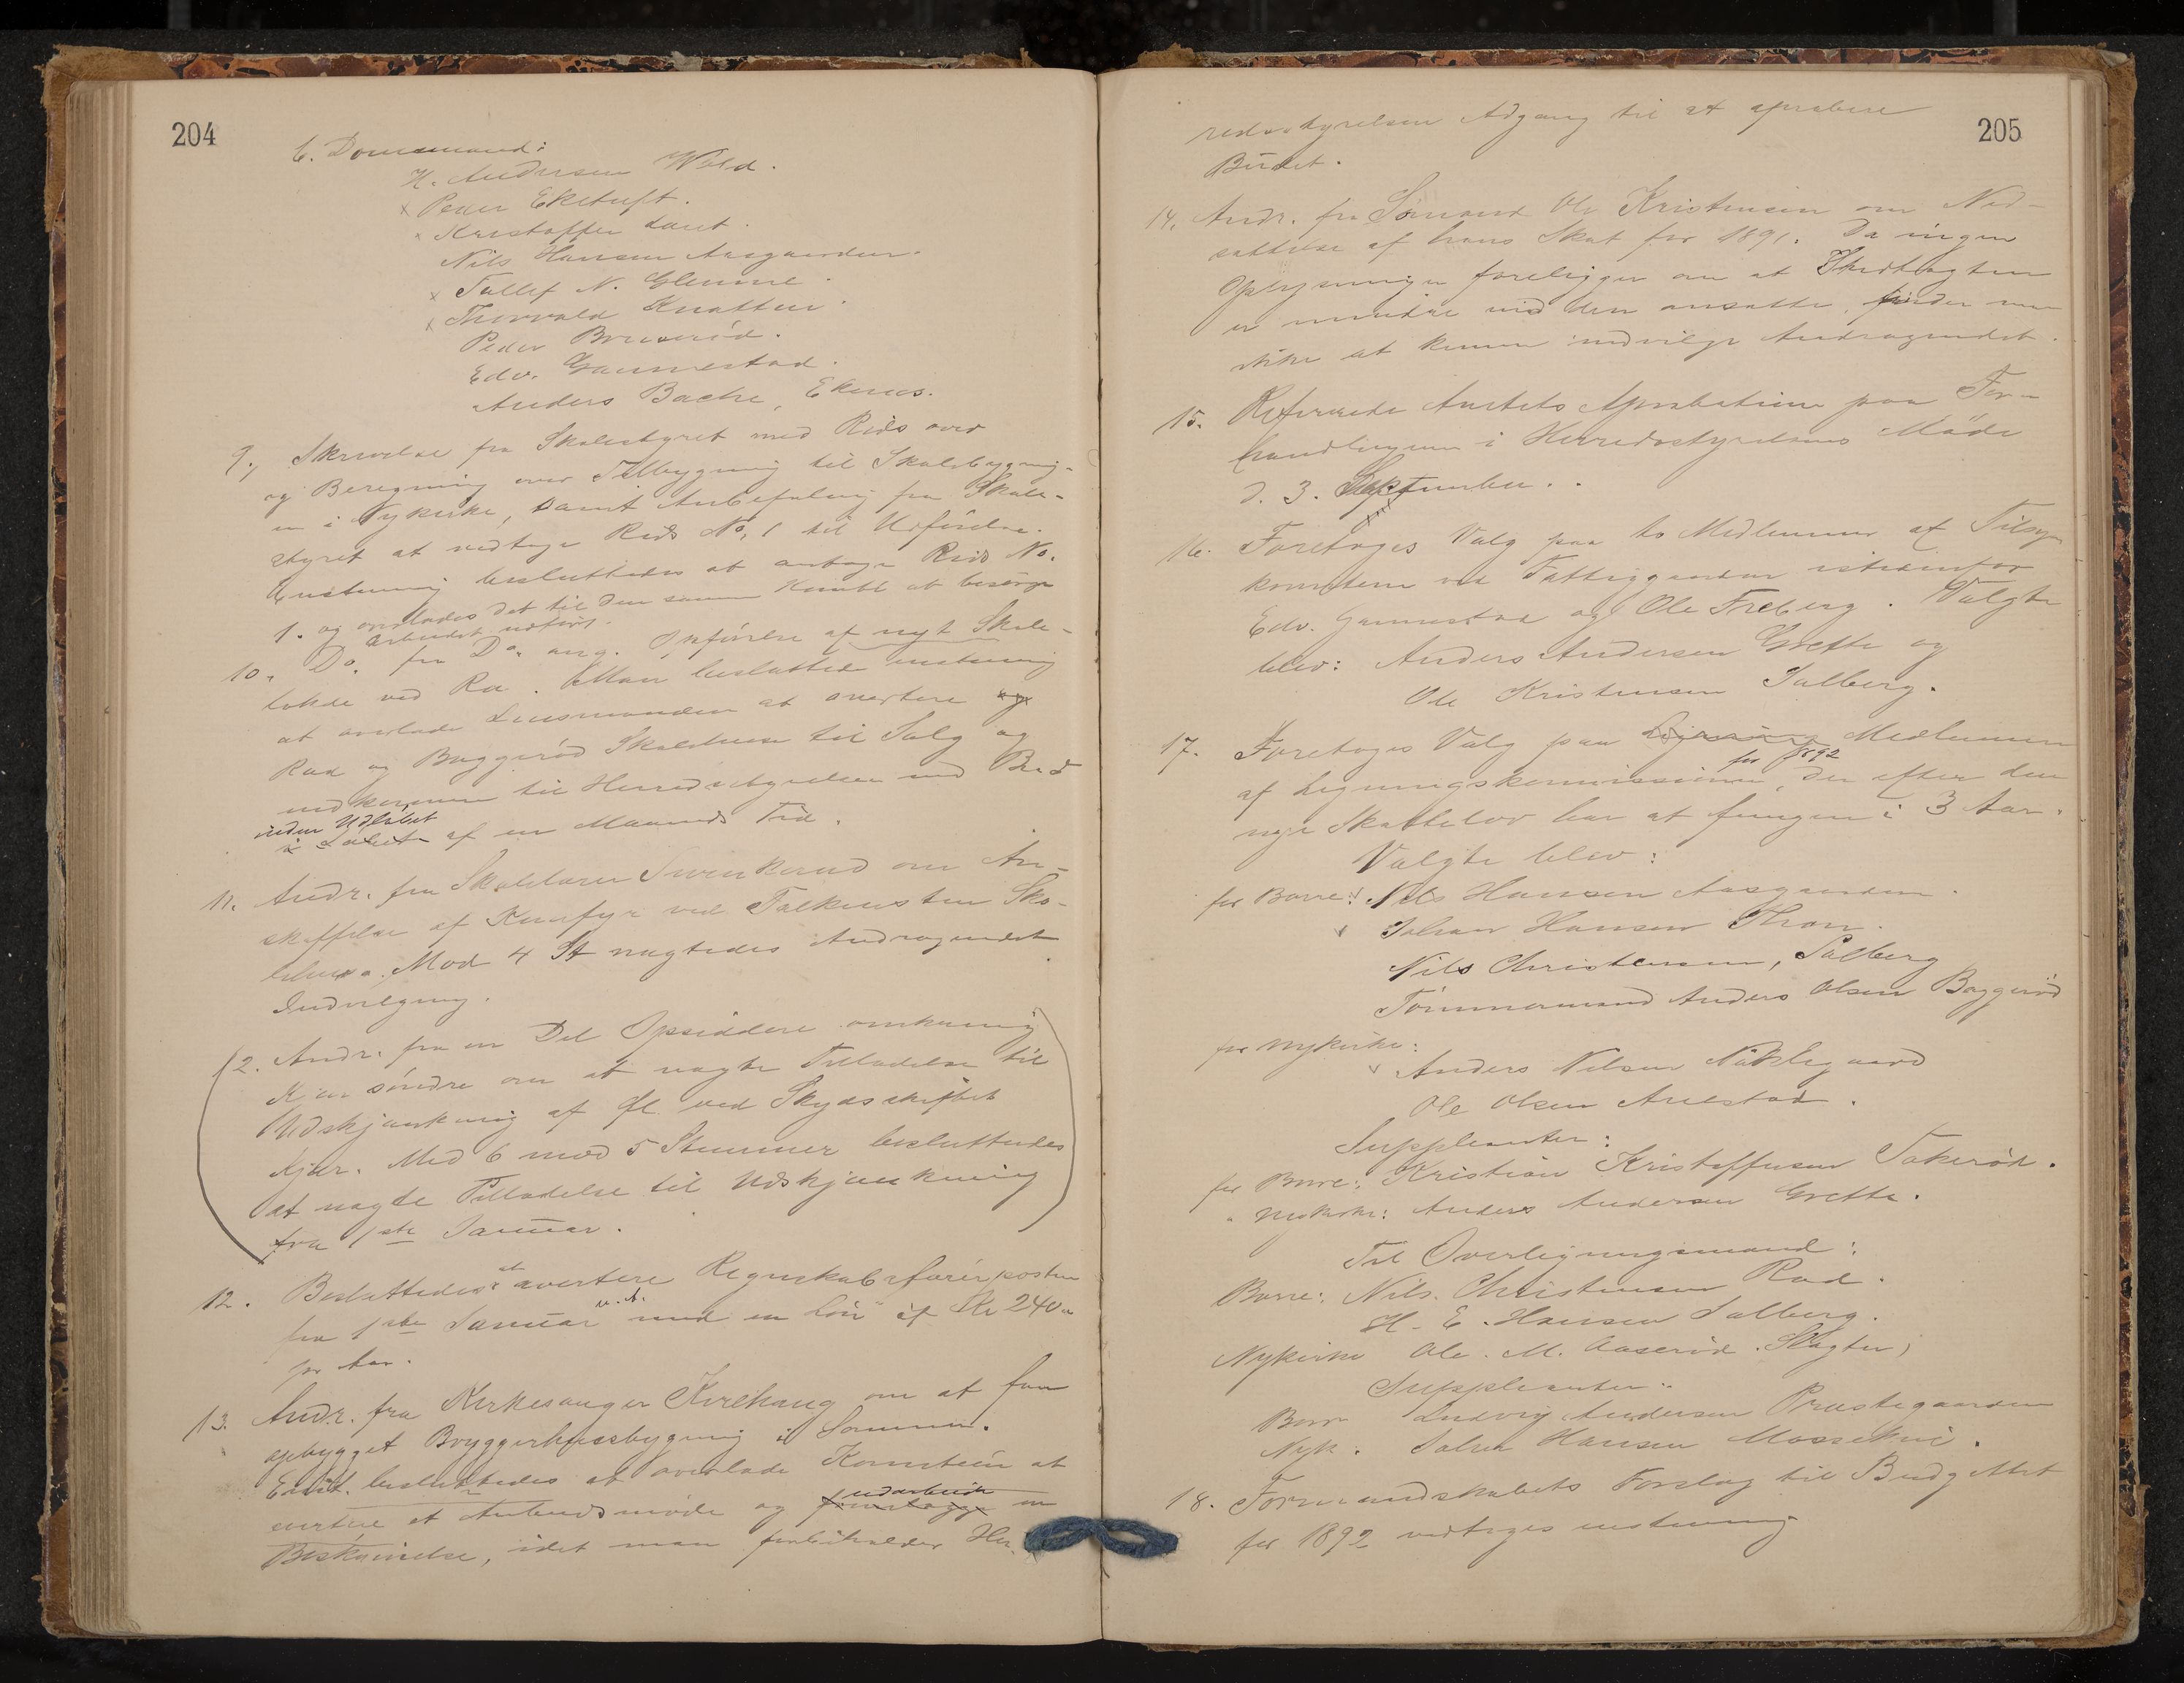 204
b. Domsmænd:
H. Andersen Wold.
x Peder Eketuft.
x Kristoffer
Nils Hansen Aasgaarden.
x Tallef N. Glenne.
x Thorvald Knatten.
Peder Bruserød.
Edv. Gannestad.
Anders Bache, Ekenes.
9., Skrivelse fra Skolestyret med Rids over
og Beregning over Tilbygning til Skolebygning-
en i Nykirke, samt Anbefaling fra Skole-
styret at vedtage Rids No. 1 til Udførelse.
Enstemmig besluttedes at antage Rids No.
1. og overlodes det til den samme Komite at besørge
Arbeidet udført.
10. Do. fra Do. ang. Opførelse af nyt Skole-
lokale ved Ra. Man besluttede enstemmig
at overlade Lensmanden at avertere og
Rad og Baggerød Skolehuse til Salg og
indkomme til Herredsstyrelsen med Bud
inden Udløbet
i Løbet af en Maaneds Tid.
11. Andr. fra Skolelærer Svenkerud om An-
skaffelse af Komfyr ved Falkensten Sko-
lehus. Mod 4 St nægtedes Andragendet
Indvilgning.
12. Andr. fra en Del Opsiddere omkring
Kjær søndre om at nægte Tilladelse til
Udskjænkning af Øl ved Skydsskiftet
Kjær. Med 6 mod 5 Stemmer besluttedes
at nægte Tilladelse til Udskjænkning
fra 1ste Januar.
12. Besluttedes at avertere Regnskabsførerposten
fra 1ste Januar n. A. med en Løn af Kr 240
pr Aar.
13. Andr. fra Kirkesanger Kirkhaug om at faa
opbygget Bryggerhusbygning i Sommer.
Enst. besluttedes at overlade Komiteen at
avertere et Anbudsmøde og udarbeide en
Beskrivelse, idet man forbeholder Her-
205
redsstyrelsen Adgang til at aprobere
Budet.
14. Andr. fra Sømand Ole Kristensen om Ned-
sættelse af hans Skat for 1891. Da ingen
Oplysninger foreligger om at Indtægten
er mindre end den ansatte, finder man
ikke at kunne indvilge Andragendet.
15. Refererede Amtets Aprobation paa For-
handlingerne i Herredsstyrelsens Møde
d. 3. September.
16. Foretoges Valg paa to Medlemmer af Tilsyns
komiteen ved Fattiggaarden istedenfor
Edv. Gannestad og Ole Freberg. Valgte
blev: Anders Andersen Grette og
Ole Kristensen Solberg.
17. Foretoges Valg paa Ligning Medlemmer
af Ligningskommissionen for 1892, der efter den
nye Skattelov har at fungere i 3 Aar.
Valgte blev:
for Borre: Nils Hansen Aasgaarden.
Johan Hansen Thron.
Nils Christensen, Solberg
Tømmermand Anders Olsen Baggerød
for Nykirke:
Anders Nilsen Nøklegaard
Ole Olsen Aulestad.
Suppleanter:
for Borre: Kristian Kristoffersen Tokerød.
" Nykirke: Anders Andersen Grette.
Til Overligningsmænd:
Borre: Nils Christensen Rad.
H. E. Hansen Solberg.
Nykirke Ole M. Aaserød. Slagter,
Suppleanter:
Borre Ludvig Andersen Præstegaarden
Nyk. Johan Hansen
18. Formandskabets Forslag til Budgettet
for 1892 vedtoges enstemmig